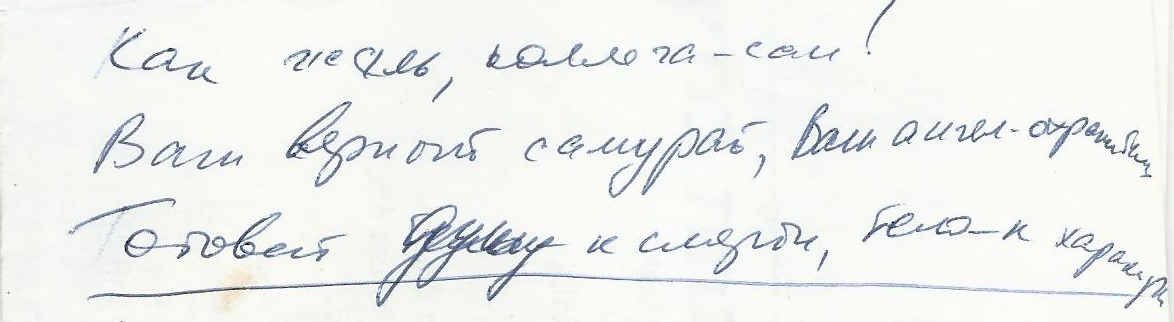 Как жаль, коллега-сан!
Ваш верный самурай, Ваш ангел-охранитель
Готовит душу к смерти, тело – к харакири